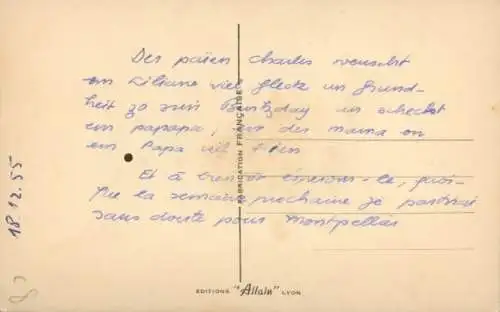 Der païen Charles wenscht
en Liliane viel Gleck un Gsund-
heit zo sin Burtzday un scheckt
em papapa, der mama on
em Papa vil
Et à bientôt espérons-le, puis-
que la semaine prochaine je partirai
sans doute pour Montpellier
18.12.55
FABRICATION FRANÇAISE
EDITIONS "Allain" LYON